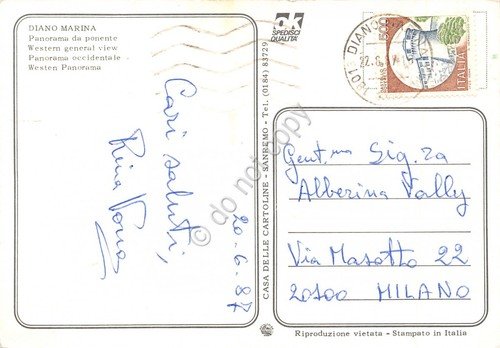 DIANO MARINA
Panorama da ponente
Western general view
Panorama occidentale
Westen Panorama
ok
SPEDISCI
QUALITÀ
ITALIA
Cari saluti,
Rina
20-6-87
CASA DELLE CARTOLINE - SANREMO - Tel. (0184) 83729
Gent.ma Sig.ra
Alberina Vally
Via Masotto 22
20100 MILANO
do not copy
Riproduzione vietata - Stampato in Italia